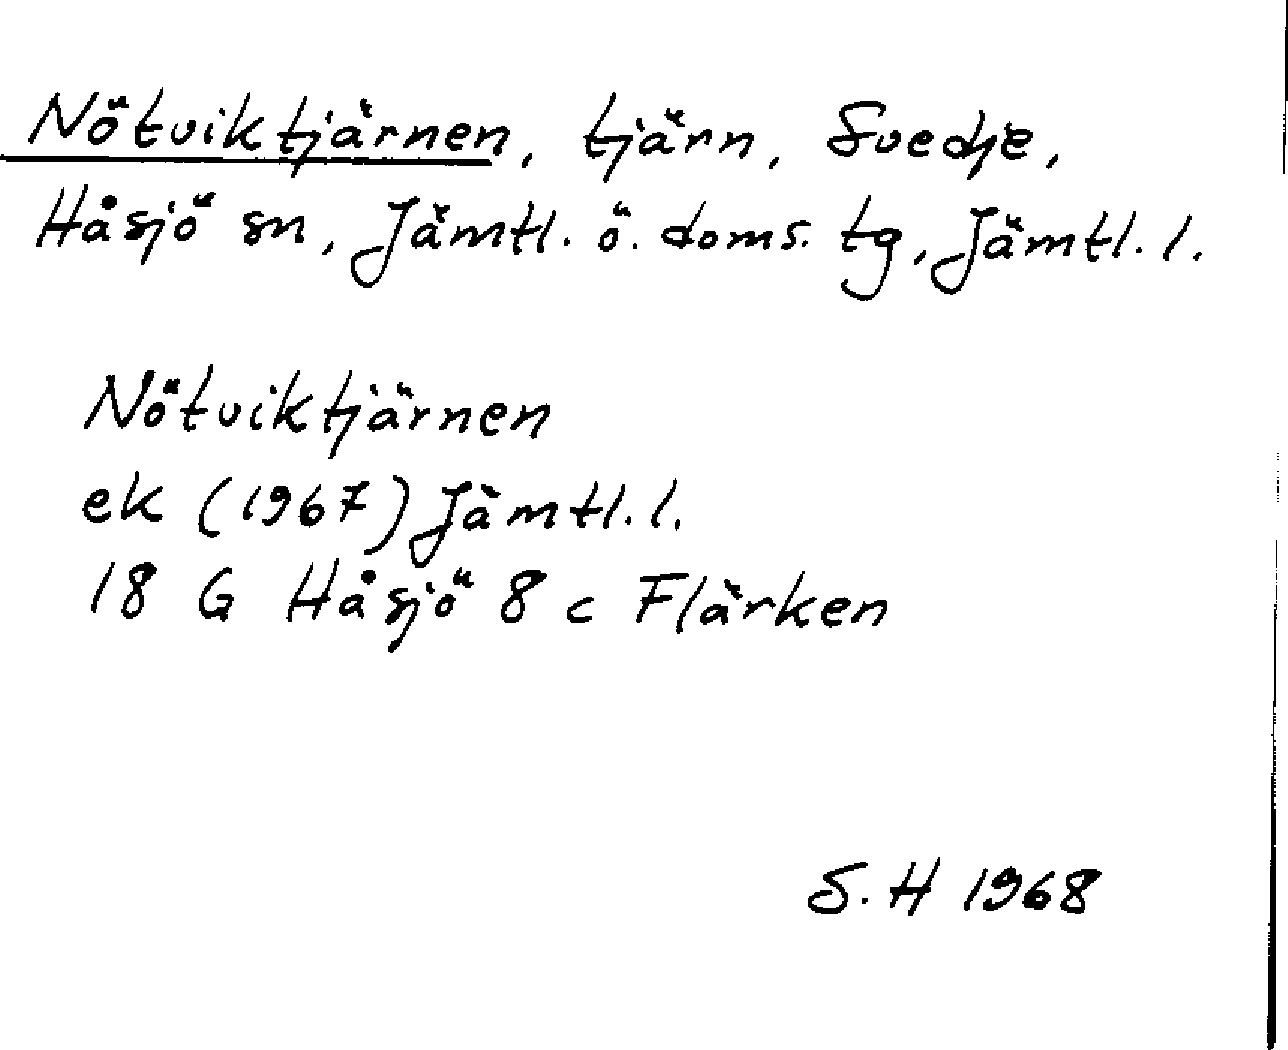 Nötviktjärnen, tjärn, Svedje,
Håsjö sn, Jämtl. ö. doms. tg, Jämtl. l.
Nötviktjärnen
ek (1967) Jämtl. l.
18 G Håsjö 8 c Flärken
S. H 1968